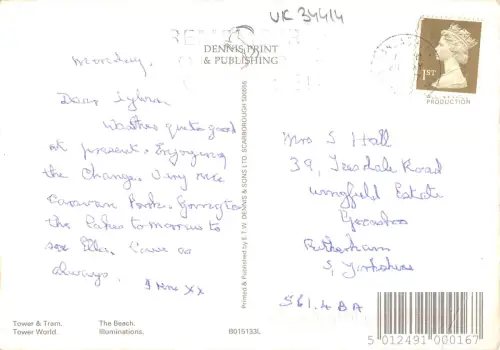 UK 34414
DENNIS PRINT
& PUBLISHING
1ST
PRODUCTION
Monday,
Dear Sylvia
Weather quite good
at present. Enjoying
the Change. Very nice
Caravan Park. Going to
the Lakes tomorrow to
see Ella. Love as
always.
xx
Printed & Published by E.T.W. DENNIS & SONS LTD. SCARBOROUGH
Mrs S Hall
39, Road
Wingfield Estate
Rotherham
S, Yorkshire
S61. 4 BA
Tower & Tram. The Beach.
Tower World. Illuminations.
B015133L
5 012491 000167